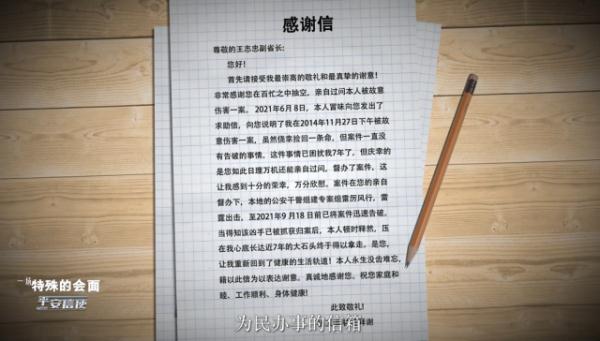 感谢信
尊敬的王志忠副省长:
您好!
首先请接受我最崇高的敬礼和最真挚的谢意!
非常感谢您在百忙之中抽空，亲自过问本人被故意
伤害一案。2021年6月8日，本人冒昧向您发出了
求助信，向您说明了我在2014年11月27日下午被故
意伤害一案，虽然侥幸捡回一条命，但案件一直没
有告破的事情。这件事情已困扰我7年了，但庆幸的
是您如此日理万机还能亲自过问，督办了案件，这
让我感到十分的荣幸，万分欣慰。案件在您的亲自
督办下，本地的公安干警组建专案组雷厉风行，雷
霆出击，至2021年9月18日前已将案件迅速告破。
当得知该凶手已被抓获归案后，本人顿时释然，压
在我心底长达近7年的大石头终于得以拿走。是您，
让我重新回到了健康的生活轨道！本人永生没齿难忘，
藉以此信为以表达谢意。真诚地感谢您。祝您家庭和
睦、工作顺利、身体健康!
此致敬礼!
谢
特殊的会面
平安信使
为民办事的信箱